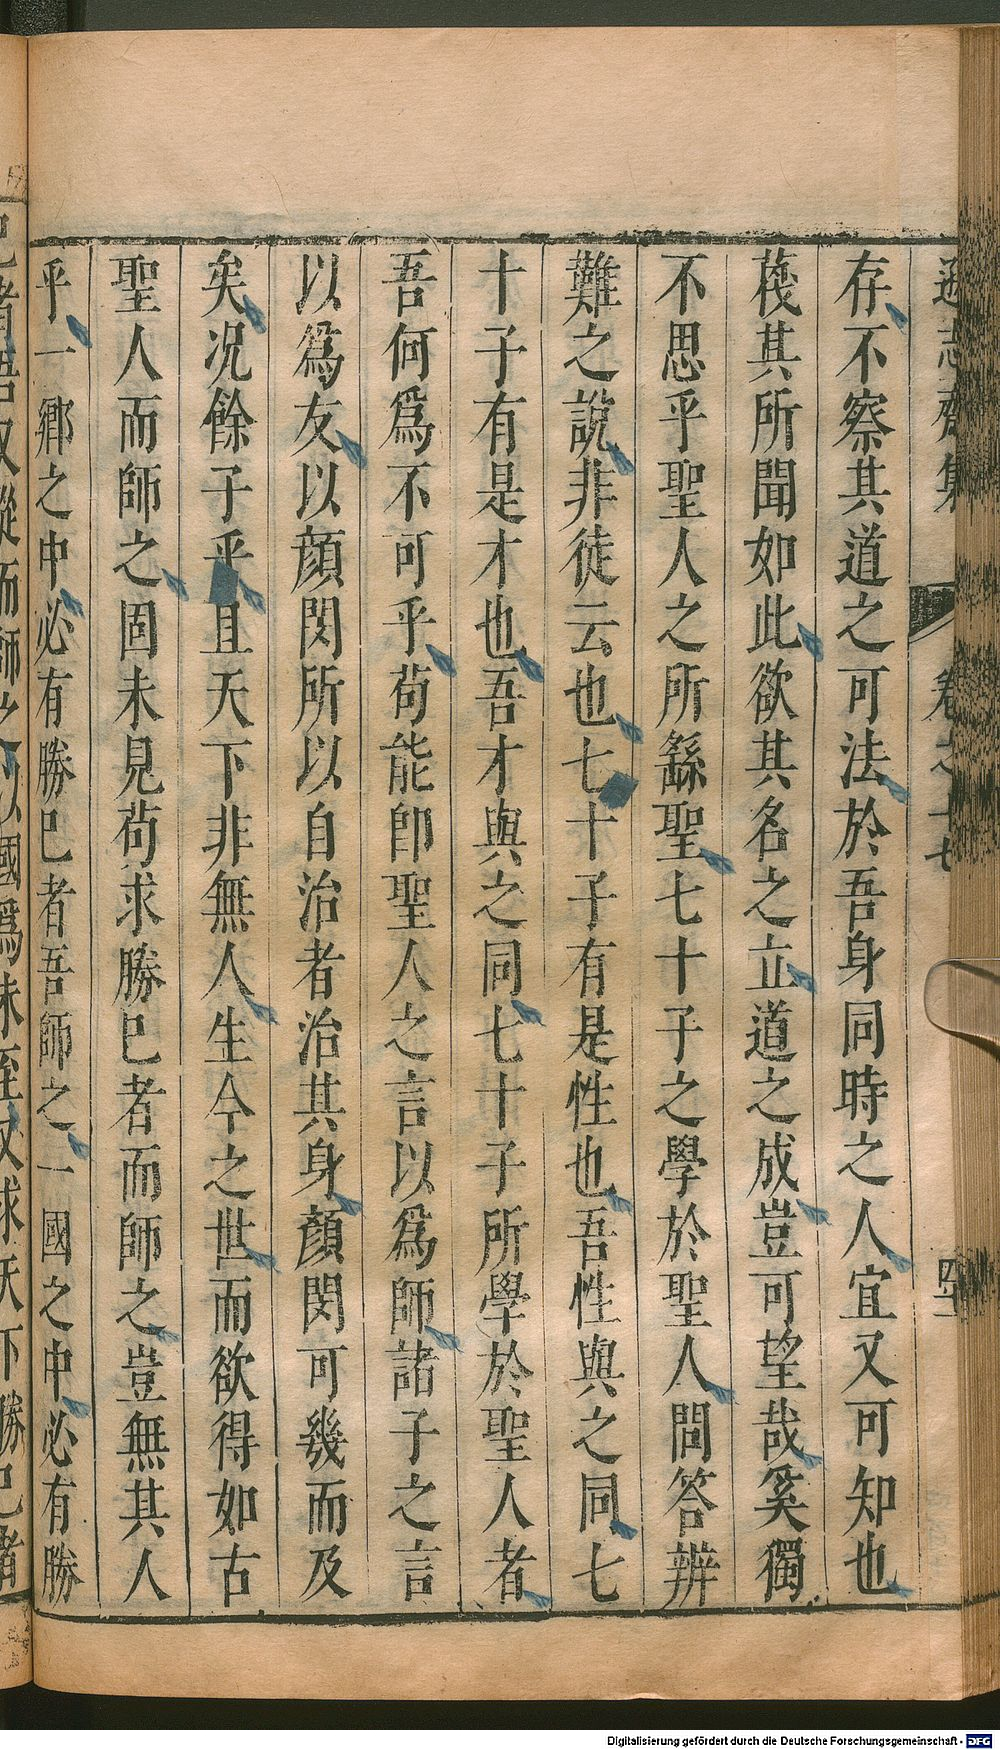 遜志齋集 卷之十七 四
存不察其道之可法於吾身同時之人宜又可知也
萐其所聞如此欲其名之立道之成豈可望哉奚獨
不思乎聖人之所繇聖七十子之學於聖人問答辨
難之說非徒云也七十子有是性也吾性與之同七
十子有是才也吾才與之同七十子所學於聖人者
吾何爲不可乎苟能卽聖人之言以爲師諸子之言
以爲友以顔閔所以自治者治其身顔閔可幾而及
矣况餘子乎且天下非無人生今之世而欲得如古
聖人而師之固未見苟求勝已者而師之豈無其人
乎一鄉之中必有勝已者吾師之一國之中必有勝
已者吾又從而師之以國爲未至又求天下勝已者
Digitalisierung gefördert durch die Deutsche Forschungsgemeinschaft - DFG